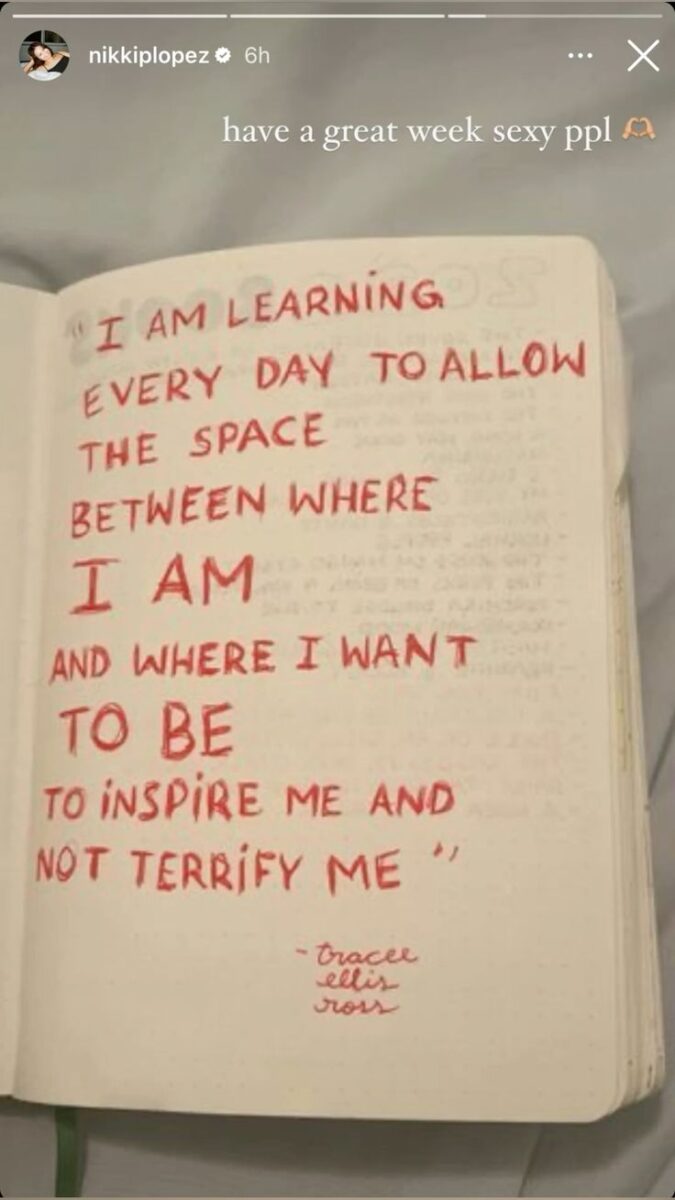 nikkiplopez 6h
have a great week sexy ppl 🫶🏼
"I AM LEARNING
EVERY DAY TO ALLOW
THE SPACE
BETWEEN WHERE
I AM
AND WHERE I WANT
TO BE
TO INSPIRE ME AND
NOT TERRIFY ME"
- tracee
ellis
ross